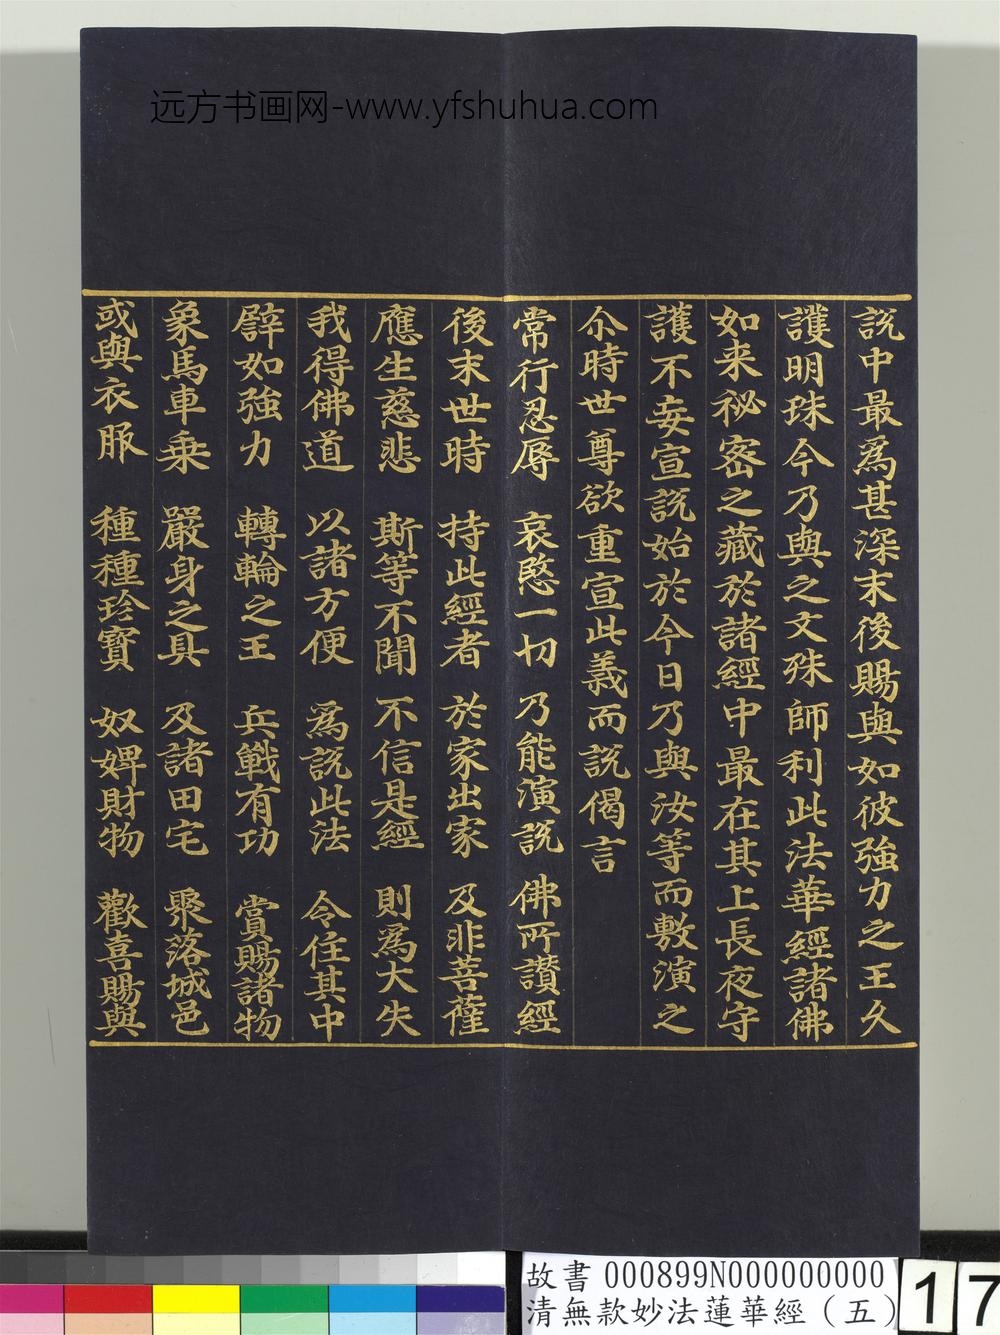 远方书画网-www.yfshuhua.com
說中最為甚深末後賜與如彼強力之王久
護明珠今乃與之文殊師利此法華經諸佛
如来秘密之藏於諸經中最在其上長夜守
護不妄宣說始於今日乃與汝等而敷演之
尒時世尊欲重宣此義而說偈言
常行忍辱 哀愍一切 乃能演說 佛所讃經
後末世時 持此經者 於家出家 及非菩薩
應生慈悲 斯等不聞 不信是經 則為大失
我得佛道 以諸方便 為說此法 令住其中
譬如強力 轉輪之王 兵戰有功 賞賜諸物
象馬車乗 嚴身之具 及諸田宅 聚落城邑
或與衣服 種種珍寶 奴婢財物 歡喜賜與
故書 000899N000000000
清無款妙法蓮華經（五）
17